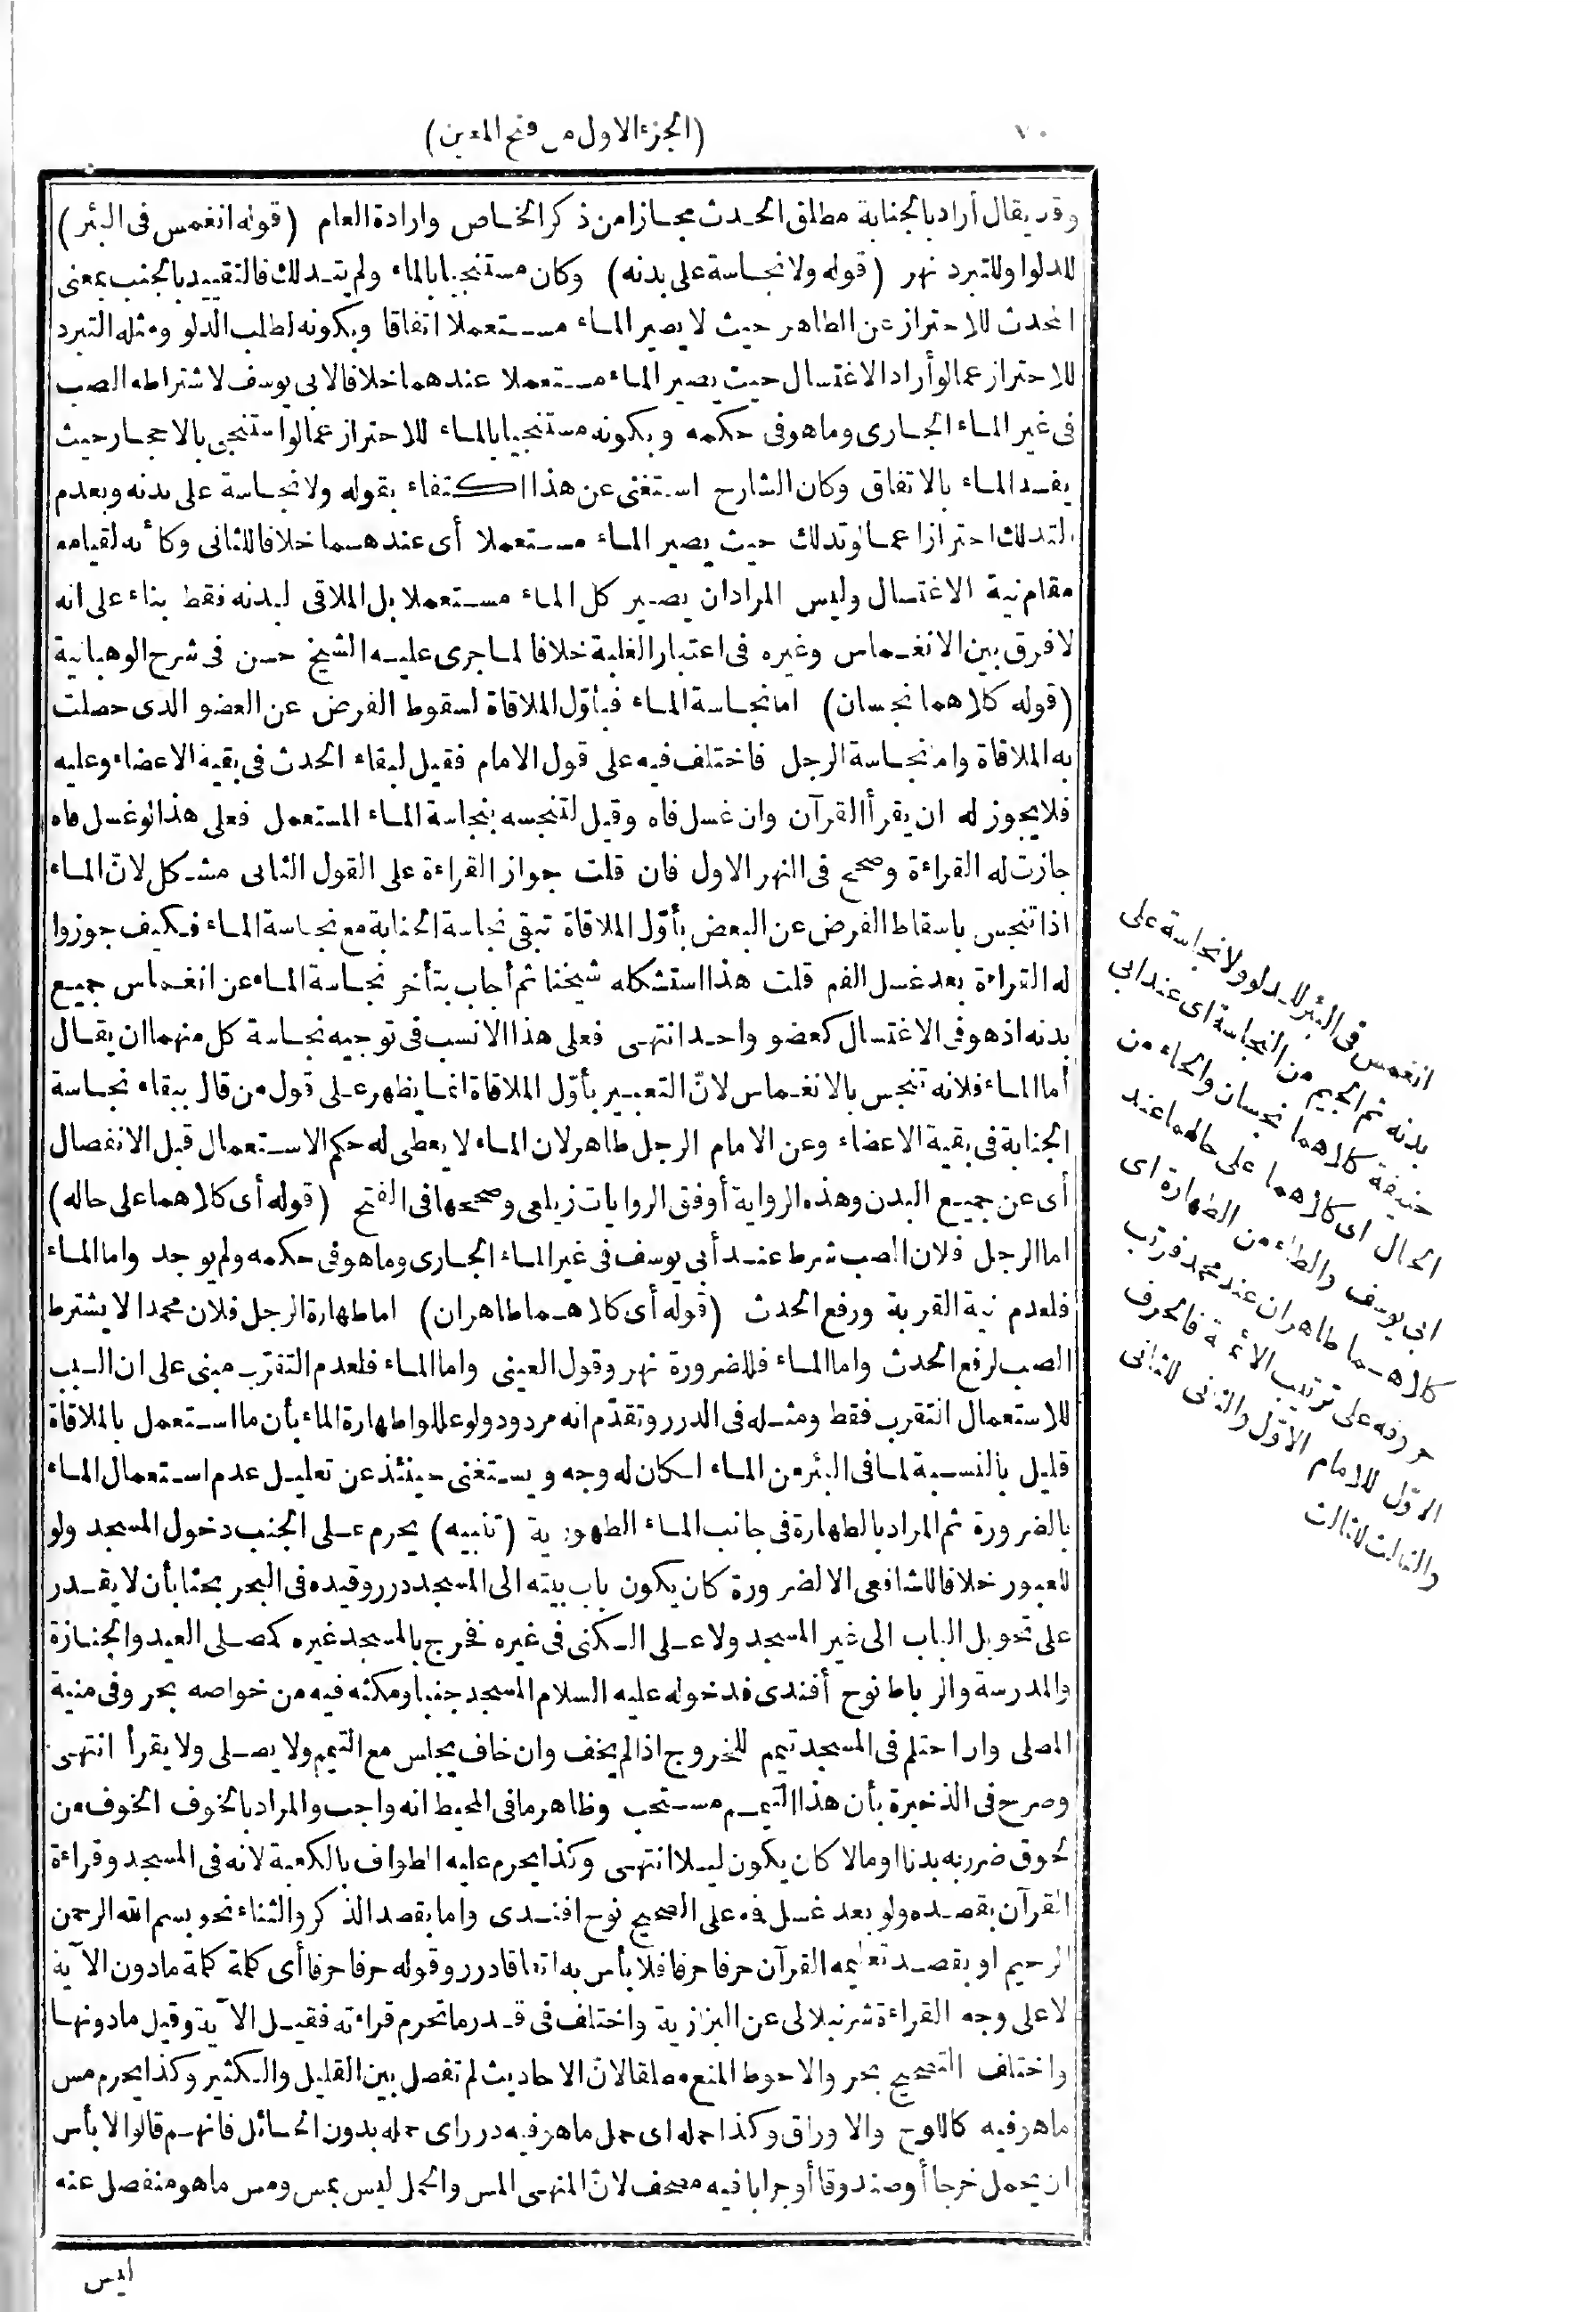 ٧٠
(الجزء الاول من فتح المعين)
وقد يقال أراد بالجنابة مطلق الحدث مجازا من ذكر الخاص وارادة العام (قوله انغمس فى البئر)
للدلوا وللتبرد نهر (قوله ولا نجاسة على بدنه) وكان مستنجيا بالماء ولم يتدلك فالتقييد بالجنب بمعنى
المحدث للاحتراز عن الطاهر حيث لا يصير الماء مستعملا اتفاقا وبكونه لطلب الدلو ومثله التبرد
للاحتراز عما لو أراد الاغتسال حيث يصير الماء مستعملا عندهما خلافا لابى يوسف لاشتراطه الصب
فى غير الماء الجارى وما هو فى حكمه وبكونه مستنجيا بالماء للاحتراز عما لو استنجى بالاحجار حيث
يفسد الماء بالاتفاق وكان الشارح استغنى عن هذا اكتفاء بقوله ولا نجاسة على بدنه وبعدم
التدلك احترازا عما لو تدلك حيث يصير الماء مستعملا أى عندهما خلافا للثانى وكأنه لقيامه
مقام نية الاغتسال وليس المراد ان يصير كل الماء مستعملا بل الملاقى لبدنه فقط بناء على انه
لا فرق بين الانغماس وغيره فى اعتبار الغلبة خلافا لما جرى عليه الشيخ حسن فى شرح الوهبانية
(قوله كلاهما نجسان) اما نجاسة الماء فبأول الملاقاة لسقوط الفرض عن العضو الذى حصلت
به الملاقاة واما نجاسة الرجل فاختلف فيه على قول الامام فقيل لبقاء الحدث فى بقية الاعضاء وعليه
فلا يجوز له ان يقرأ القرآن وان غسل فاه وقيل لتنجسه بنجاسة الماء المستعمل فعلى هذا لو غسل فاه
جازت له القراءة وصحح فى النهر الاول فان قلت جواز القراءة على القول الثانى مشكل لانّ الماء
اذا تنجس باسقاط الفرض عن البعض بأوّل الملاقاة تبقى نجاسة الجنابة مع نجاسة الماء فكيف جوزوا
له القراءة بعد غسل الفم قلت هذا استشكله شيخنا ثم أجاب بتأخر نجاسة الماء عن انغماس جميع
بدنه اذ هو فى الاغتسال كعضو واحد انتهى فعلى هذا الانسب فى توجيه نجاسة كل منهما ان يقال
أما الماء فلانه تنجس بالانغماس لانّ التعبير بأوّل الملاقاة انما يظهر على قول من قال ببقاء نجاسة
الجنابة فى بقية الاعضاء وعن الامام الرجل طاهر لان الماء لا يعطى له حكم الاستعمال قبل الانفصال
أى عن جميع البدن وهذه الرواية أوفق الروايات زيلعى وصححها فى الفتح (قوله أى كلاهما على حاله)
اما الرجل فلان الصب شرط عند أبى يوسف فى غير الماء الجارى وما هو فى حكمه ولم يوجد واما الماء
فلعدم نية القربة ورفع الحدث (قوله أى كلاهما طاهران) اما طهارة الرجل فلان محمدا لا يشترط
الصب لرفع الحدث واما الماء فللضرورة نهر وقول العينى واما الماء فلعدم التقرّب مبنى على ان السبب
للاستعمال التقرب فقط ومثله فى الدرر وتقدّم انه مردود ولو عللوا طهارة الماء بأن ما استعمل بالملاقاة
قليل بالنسبة لما فى البئر من الماء لكان له وجه ويستغنى حينئذ عن تعليل عدم استعمال الماء
بالضرورة ثم المراد بالطهارة فى جانب الماء الطهورية (تنبيه) يحرم على الجنب دخول المسجد ولو
للعبور خلافا للشافعى الا لضرورة كان يكون باب بيته الى المسجد درر وقيده فى البحر بحثا بأن لا يقدر
على تحويل الباب الى غير المسجد ولا على السكنى فى غيره فخرج بالمسجد غيره كمصلى العيد والجنازة
والمدرسة والرباط نوح أفندى فدخوله عليه السلام المسجد جنبا ومكثه فيه من خواصه بحر وفى منية
المصلى وان احتلم فى المسجد تيمم للخروج اذا لم يخف وان خاف يجلس مع التيمم ولا يصلى ولا يقرأ انتهى
وصرح فى الذخيرة بأن هذا التيمم مستحب وظاهر ما فى المحيط انه واجب والمراد بالخوف الخوف من
لحوق ضرر به بدنا او مالا كان يكون ليلا انتهى وكذا يحرم عليه الطواف بالكعبة لانه فى المسجد وقراءة
القرآن بقصده ولو بعد غسل فمه على الصحيح نوح افندى واما بقصد الذكر والثناء نحو بسم الله الرحمن
الرحيم او بقصد تعليمه القرآن حرفا حرفا فلا بأس به اتفاقا درر وقوله حرفا حرفا أى كلمة كلمة ما دون الآية
لا على وجه القراءة شرنبلالى عن البزازية واختلف فى قدر ما تحرم قراءته فقيل الآية وقيل ما دونها
واختلف التصحيح بحر والاحوط المنع مطلقا لانّ الاحاديث لم تفصل بين القليل والكثير وكذا يحرم مس
ما هو فيه كاللوح والاوراق وكذا حمله اى حمل ما هو فيه درر اى حمله بدون الحائل فانهم قالوا لا بأس
ان يحمل خرجا أو صندوقا أو جرابا فيه مصحف لانّ المنهى المس والحمل ليس بمس ومس ما هو منفصل عنه
ليس
انغمس فى البئر للدلو ولا نجاسة على
بدنه ثم الجيم من النجاسة اى عند ابى
حنيفة كلاهما نجسان والحاء من
الحال اى كلاهما على حالهما عند
ابى يوسف والطاء من الطهارة اى
كلاهما طاهران عند محمد فرتب
حروفه على ترتيب الائمة فالحرف
الاوّل للامام الاوّل والثانى للثانى
والثالث للثالث